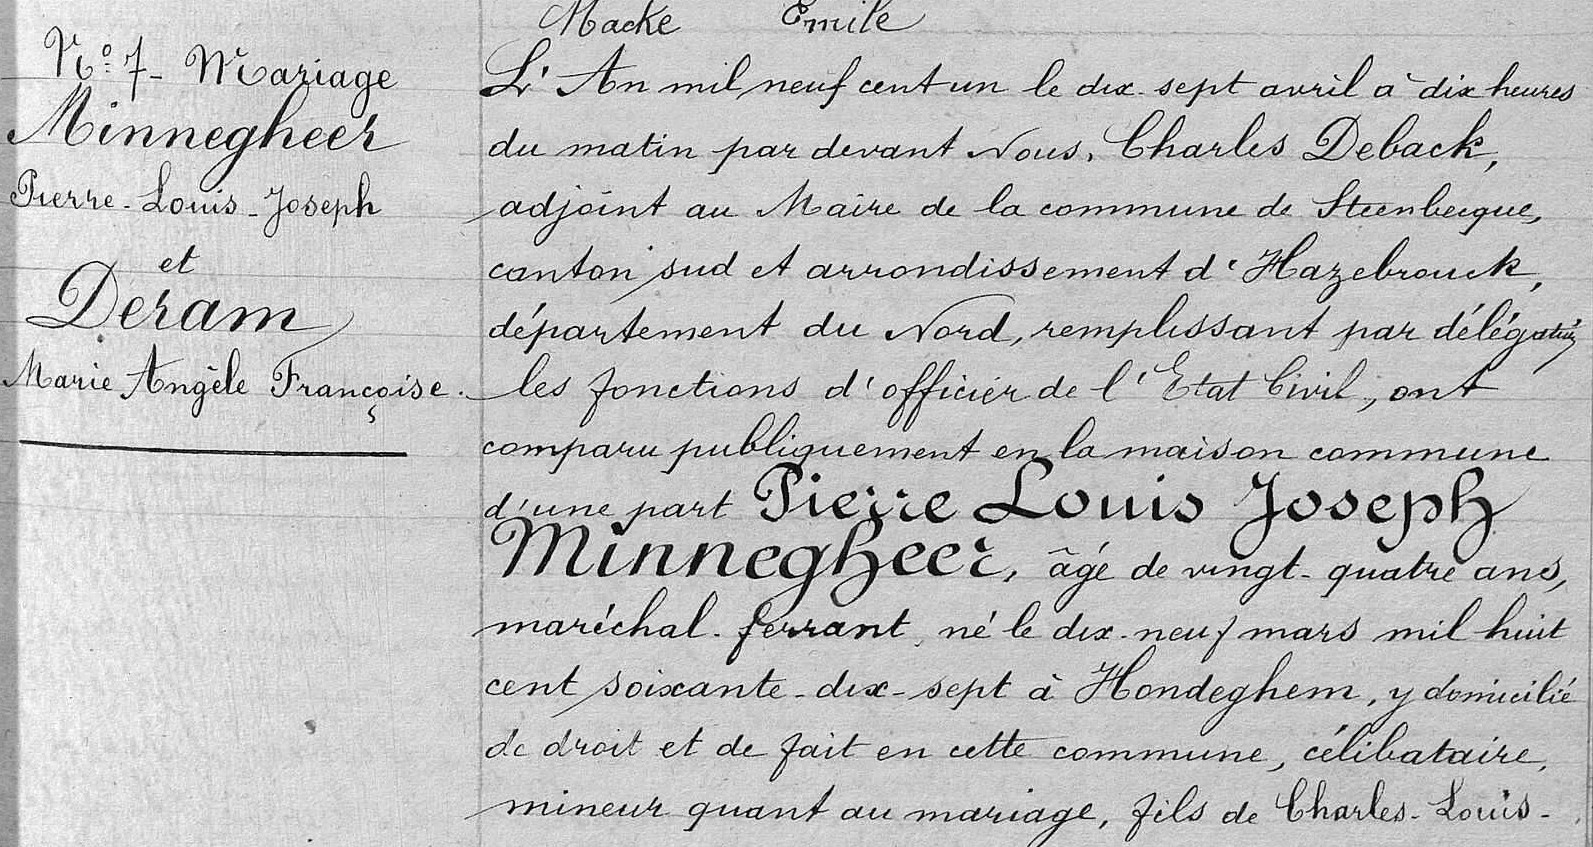 Macke Emile
N°: 7 - Mariage
Minnegheer
Pierre - Louis - Joseph
et
Deram
Marie Angèle Françoise.
L'An mil neuf cent un le dix-sept avril à dix heures
du matin par devant Nous, Charles Deback,
adjoint au Maire de la commune de Steenbecque,
canton sud et arrondissement d'Hazebrouck,
département du Nord, remplissant par délégation
les fonctions d'officier de l'Etat Civil, ont
comparu publiquement en la maison commune
d'une part Pierre Louis Joseph
Minnegheer, âgé de vingt-quatre ans,
maréchal-ferrant, né le dix-neuf mars mil huit
cent soixante-dix-sept à Hondeghem, y domicilié
de droit et de fait en cette commune, célibataire,
mineur quant au mariage, fils de Charles-Louis-